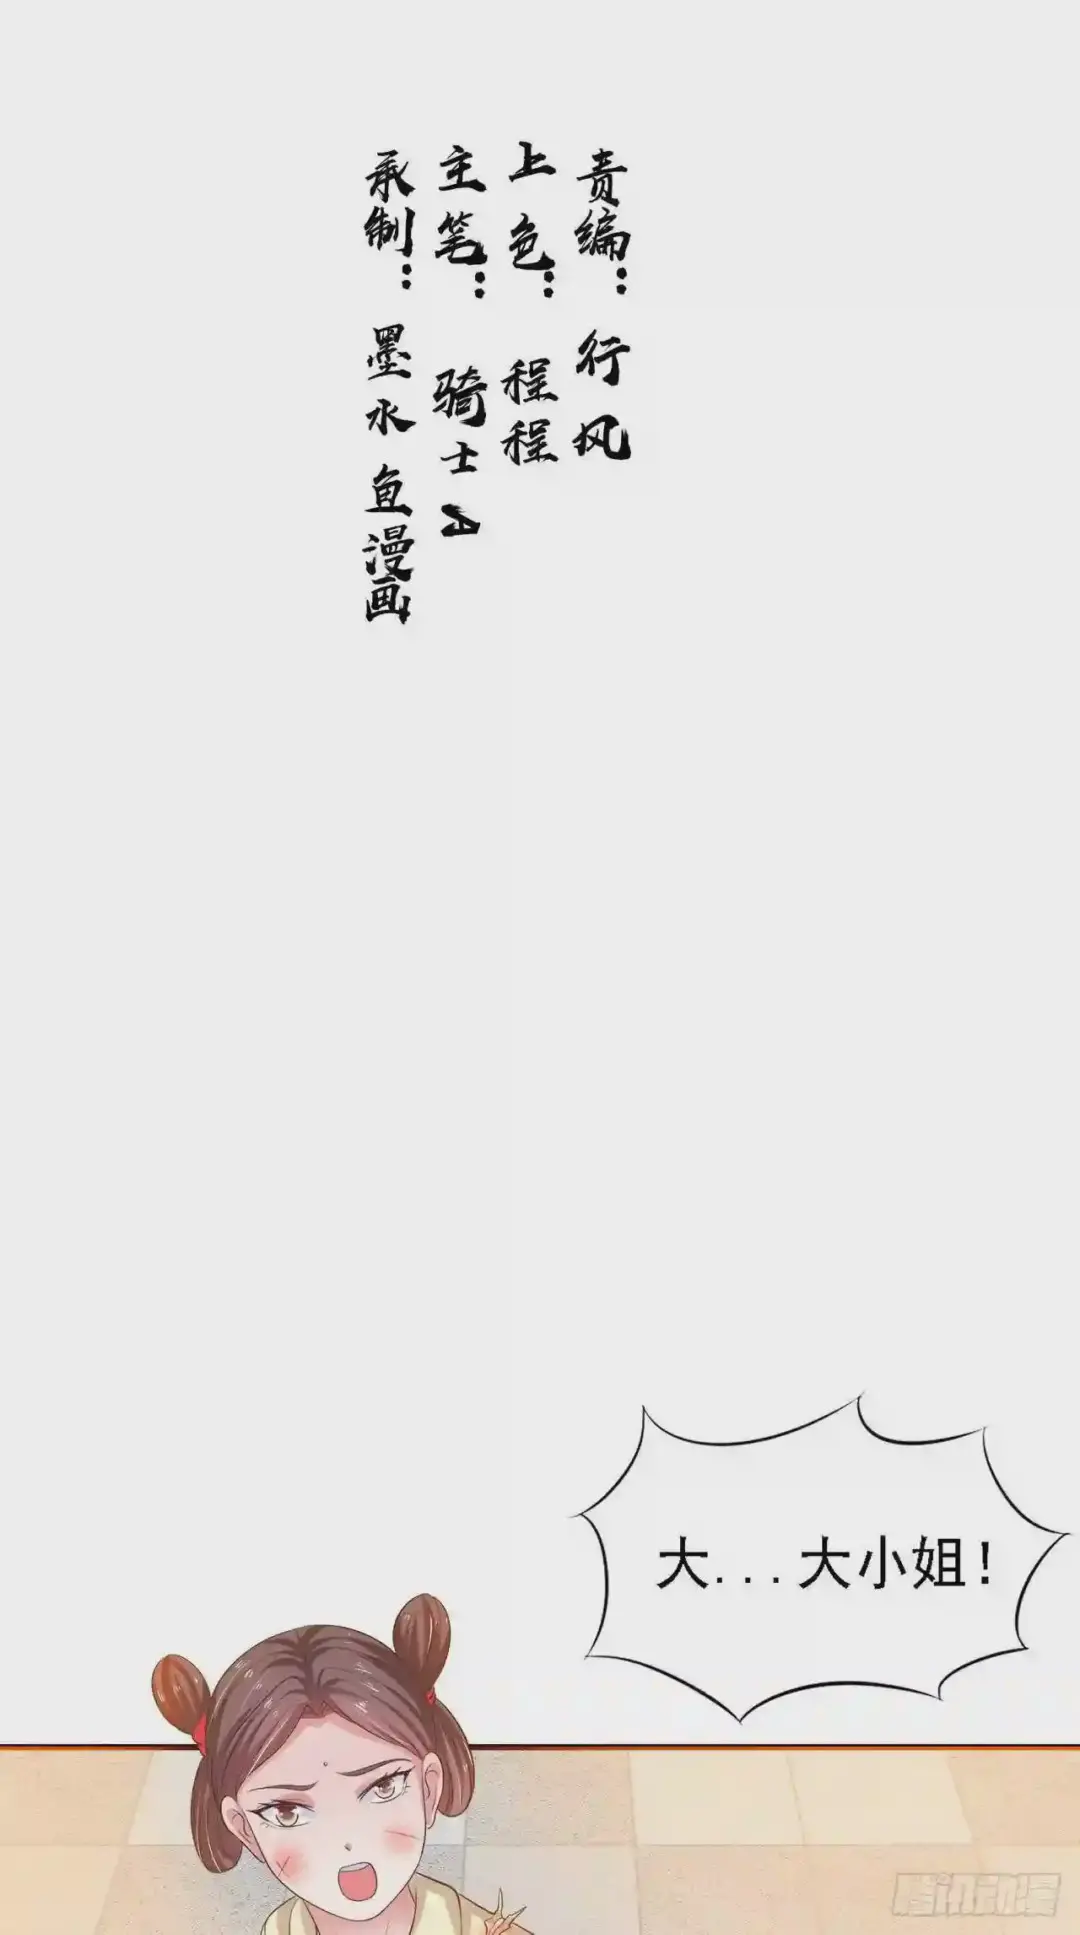 责编：行风
上色：程程
主笔：骑士A
承制：墨水鱼漫画
大...大小姐！